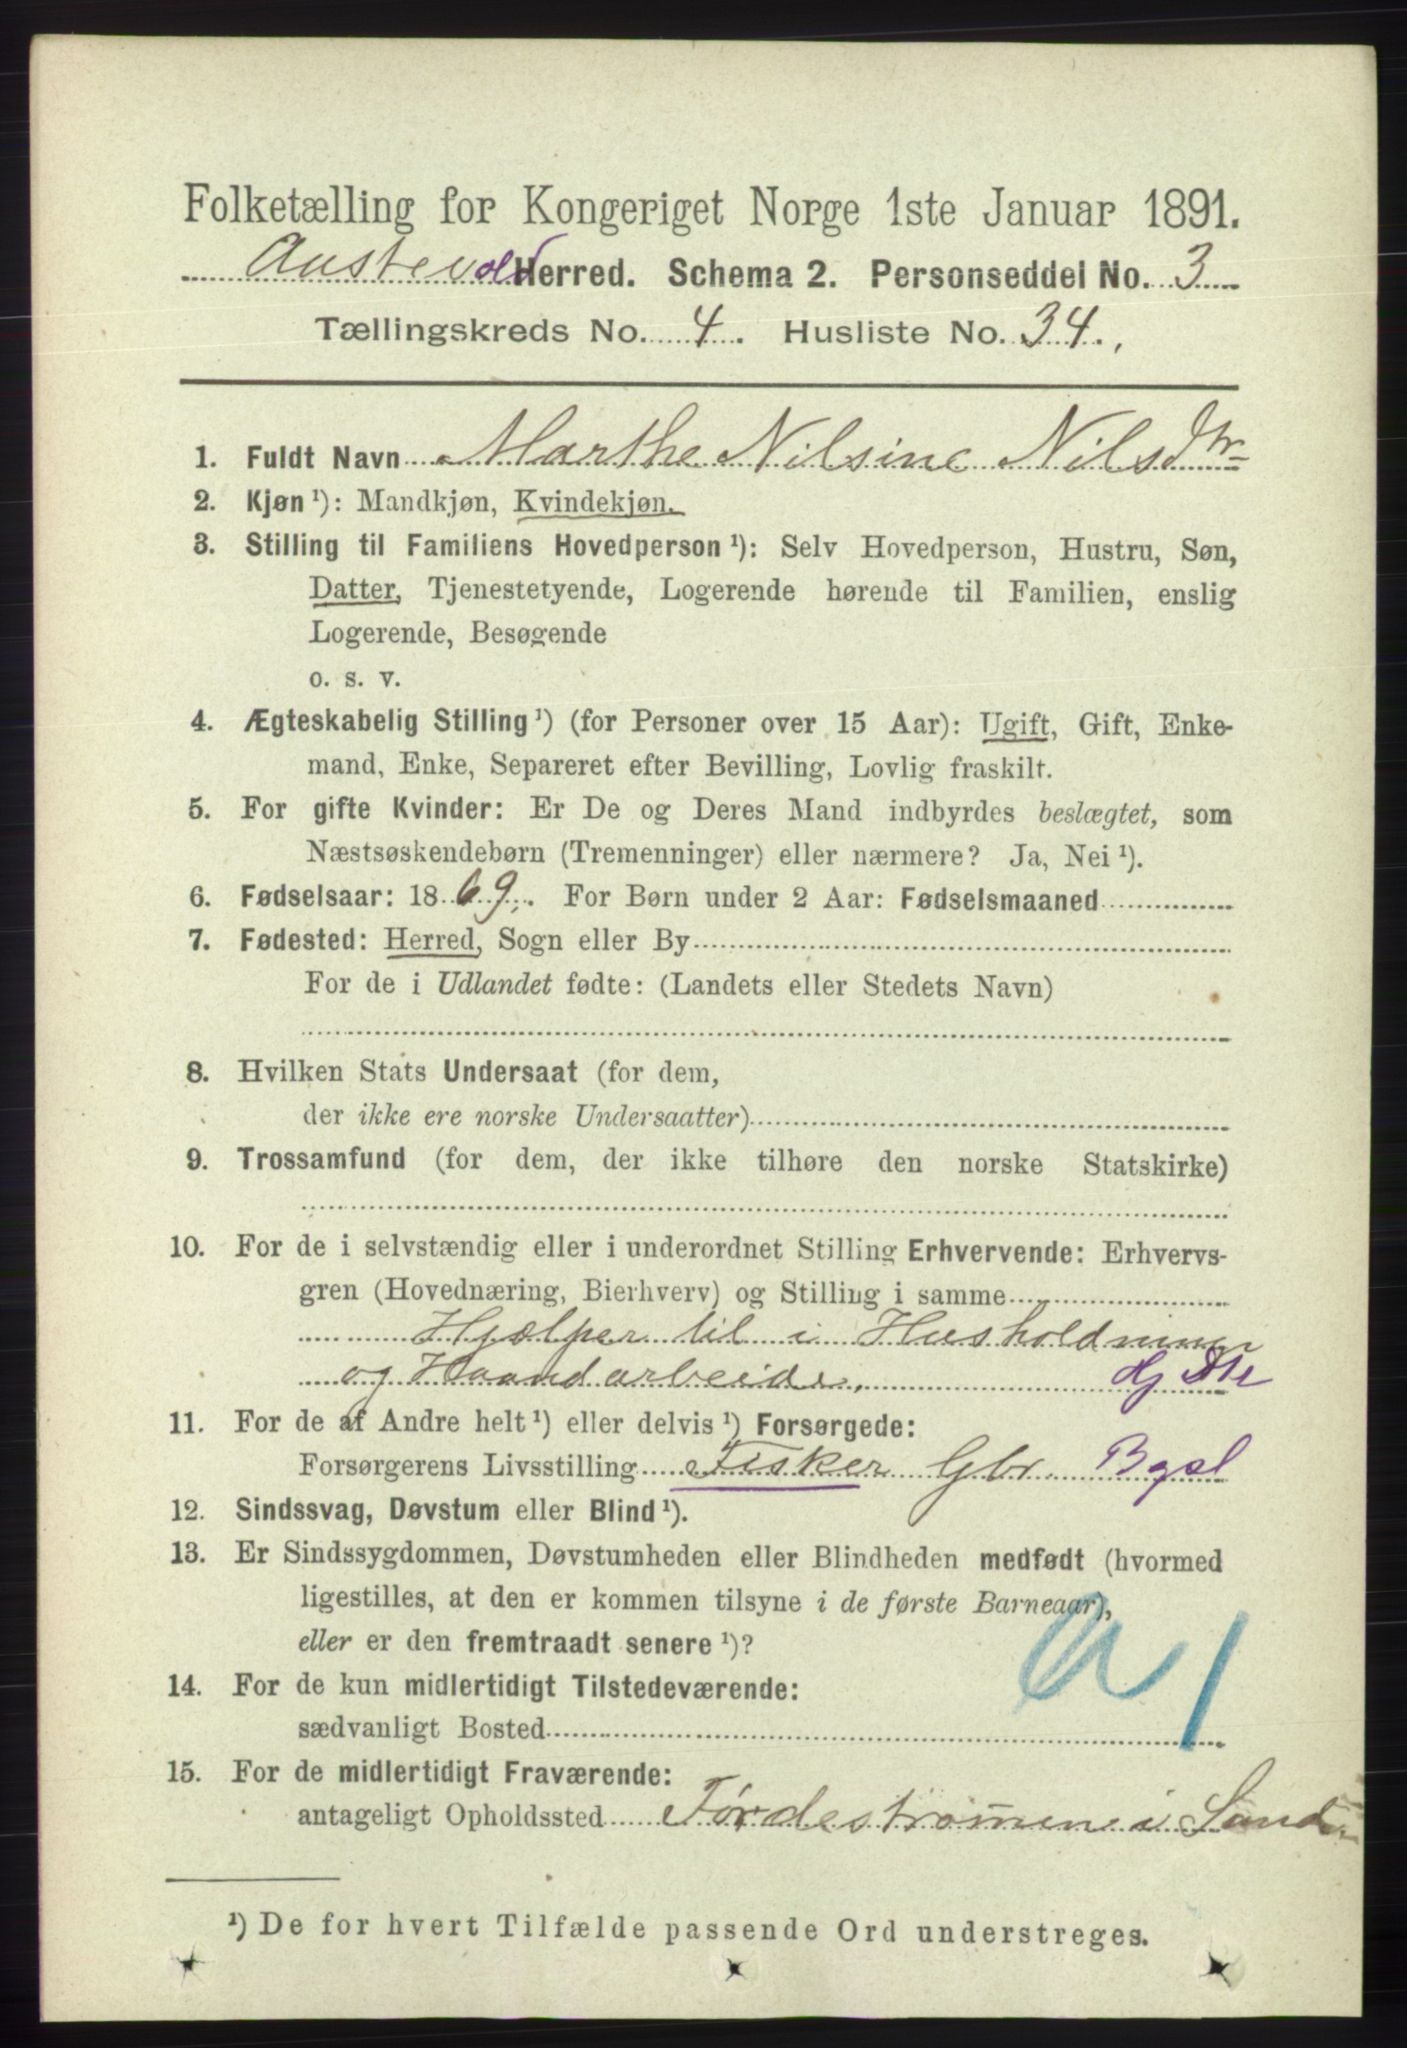 Folketælling for Kongeriget Norge 1ste Januar 1891.
Austevold Herred. Schema 2. Personseddel No. 3
Tællingskreds No. 4. Husliste No. 34.
1. Fuldt Navn Marthe Nilsine Nilsdtr
2. Kjøn ¹): Mandkjøn, Kvindekjøn.
3. Stilling til Familiens Hovedperson ¹): Selv Hovedperson, Hustru, Søn,
Datter, Tjenestetyende, Logerende hørende til Familien, enslig
Logerende, Besøgende
o. s. v.
4. Ægteskabelig Stilling ¹) (for Personer over 15 Aar): Ugift, Gift, Enke-
mand, Enke, Separeret efter Bevilling, Lovlig fraskilt.
5. For gifte Kvinder: Er De og Deres Mand indbyrdes beslægtet, som
Næstsøskendebørn (Tremenninger) eller nærmere? Ja, Nei ¹).
6. Fødselsaar: 1869. For Børn under 2 Aar: Fødselsmaaned
7. Fødested: Herred, Sogn eller By
For de i Udlandet fødte: (Landets eller Stedets Navn)
8. Hvilken Stats Undersaat (for dem,
der ikke ere norske Undersaatter)
9. Trossamfund (for dem, der ikke tilhøre den norske Statskirke)
10. For de i selvstændig eller i underordnet Stilling Erhvervende: Erhvervs-
gren (Hovednæring, Bierhverv) og Stilling i samme
Hjælper til i Husholdning
og Haandarbeide. Hj
11. For de af Andre helt ¹) eller delvis ¹) Forsørgede:
Forsørgerens Livsstilling Fisker Gbr.
12. Sindssvag, Døvstum eller Blind ¹).
13. Er Sindssygdommen, Døvstumheden eller Blindheden medfødt (hvormed
ligestilles, at den er kommen tilsyne i de første Barneaar),
eller er den fremtraadt senere ¹)?
14. For de kun midlertidigt Tilstedeværende:
sædvanligt Bosted
15. For de midlertidigt Fraværende:
antageligt Opholdssted Førdestrømen i Sund
¹) De for hvert Tilfælde passende Ord understreges.